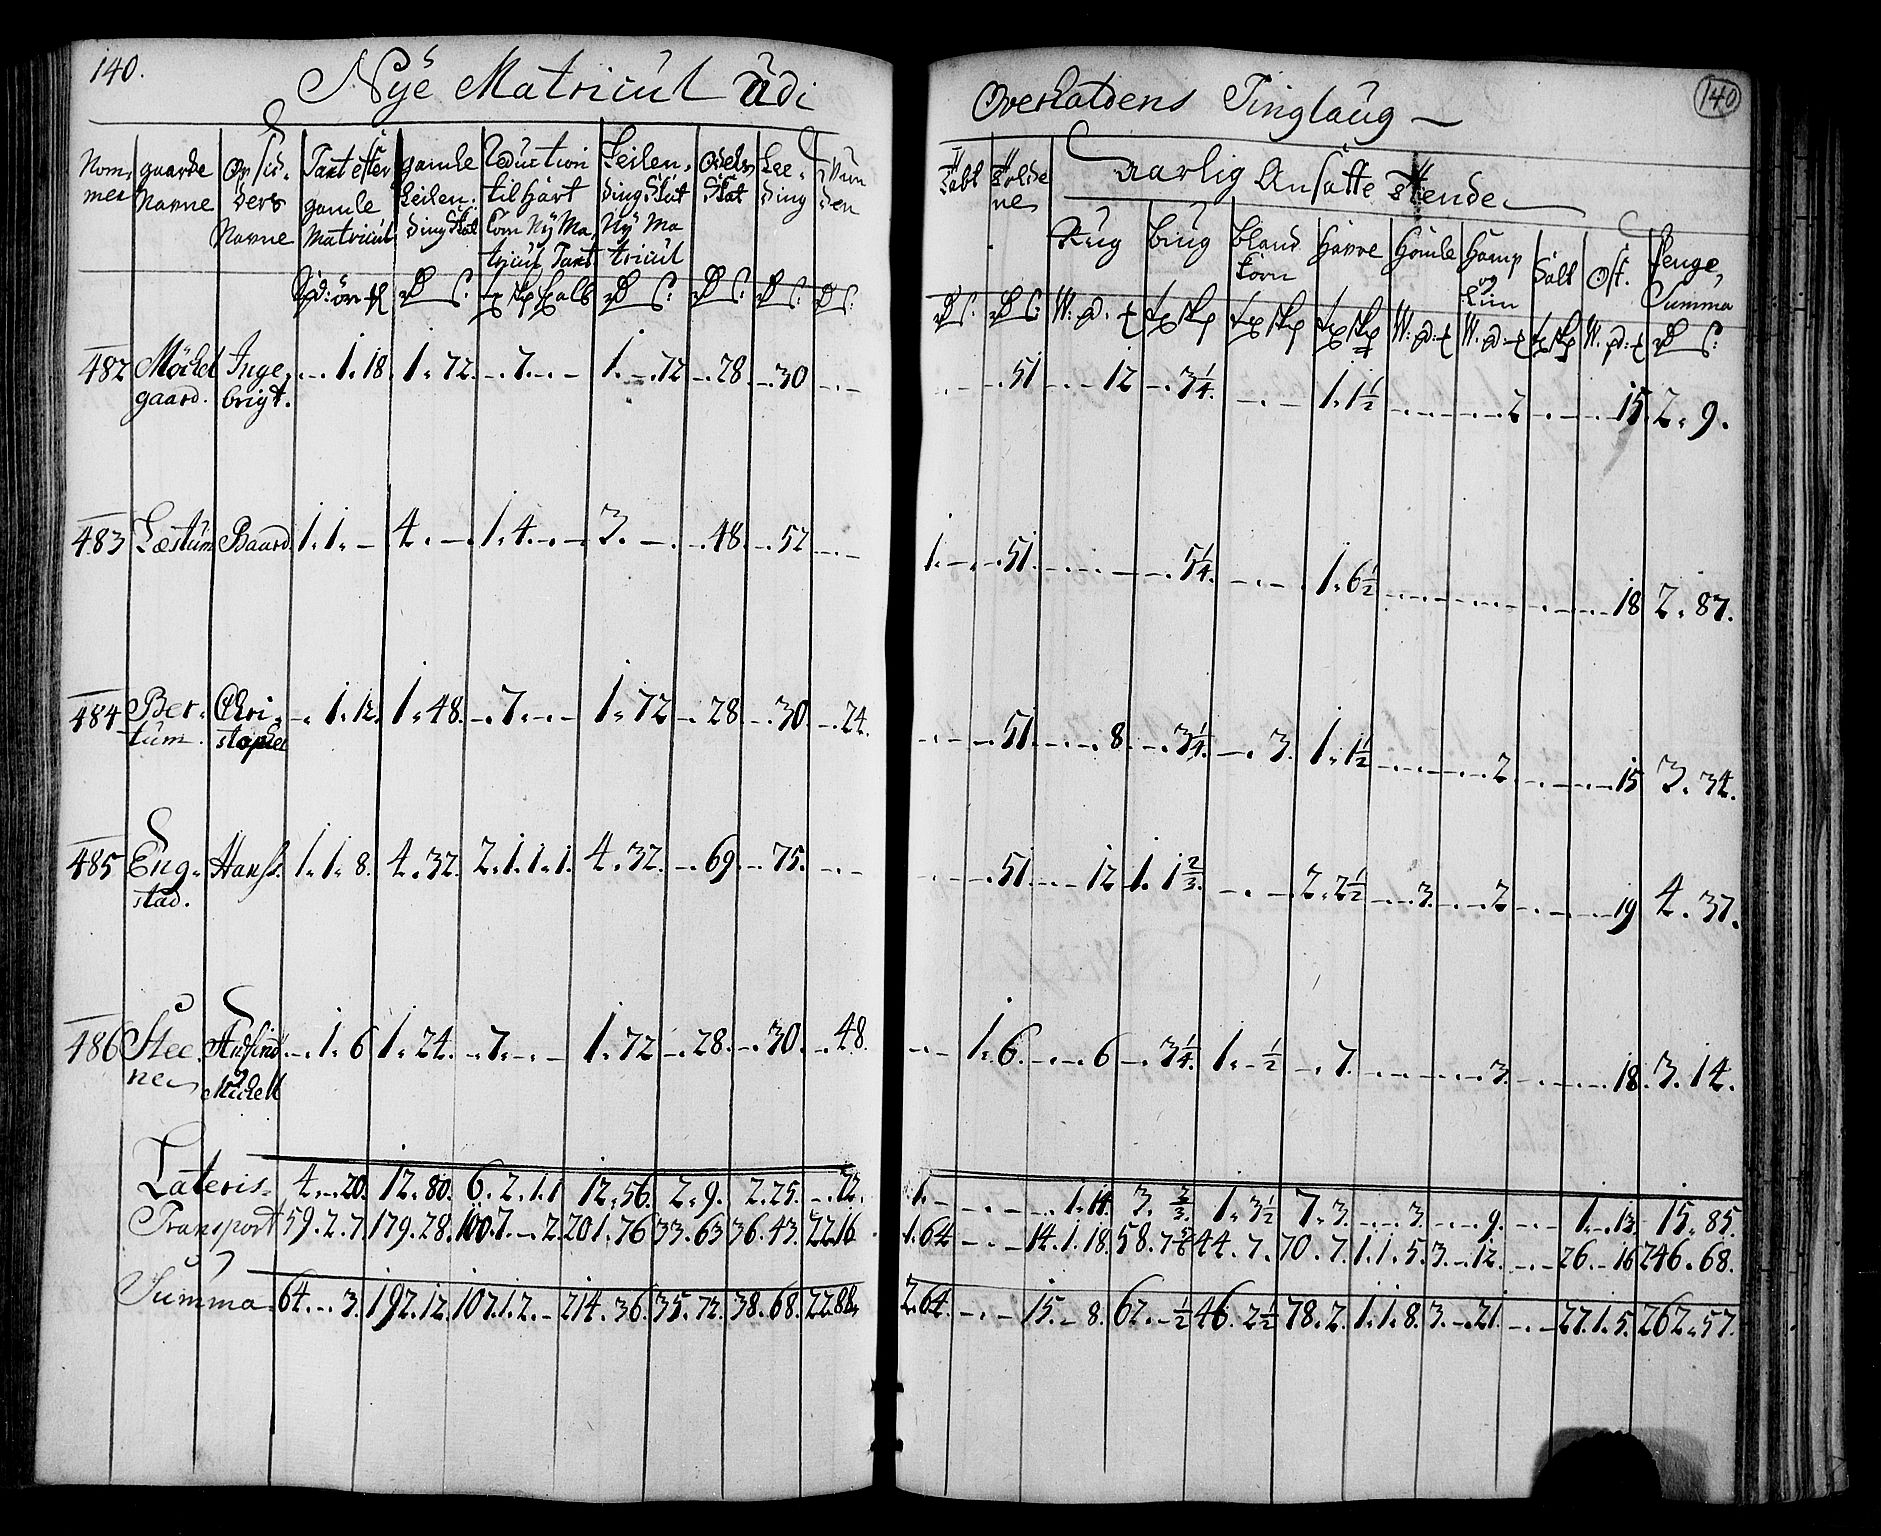 140.
Nÿe Matricul udi
Overhaldens Tinglaug
140
Nom, mer
gaarde Navne
Opsid, ders Navne
Taxt efter gamle Matricul
gamle Leilen, ding Skat
Reduction til hart Corn Nÿ Ma, tricul Taxt
Leilen, ding Skat Nÿ Ma tricul
Odels Skat
Lee, ding
Aarlig Ansatte Tiende
Rug
biug
bland korn
havre
homle
hamp og Liin
Salt
Ost.
Penge, Summa
482 Möchel gaard. Inge, brigt. -.1.18 1.72. -.7.-.- 1.-.72 -.28 -.30 -.-
-.- -.51 -.-.12 -.3¼. -.- 1.1½ -.-.- -.-.2 -.- -.-.15. 2.9.
483 Læstum Baard 1.1.- 4.- 1.4.-.- 3.- -.48. -.52 -.-
1.- -.51. -.-.- -.5¼. -.- 1.6½ -.-.- -.-.- -.- -.-.18 2.87.
484 Ber, tum. Chri, stopher -.1.12. 1.48. -.7.-.- 1.72 -.28 -.30 -.24.
-.- -.51 -.-.8. -.3¼. -.3. 1.1½ -.-.- -.-.2 -.- -.-.15 3.34.
485 Eng, stad. Hans. 1.1.8. 4.32. 2.1.1.1. 4.32. -.69. -.75. -.-
-.- -.51 -.-.12 1.1⅔. -.- 2.2½ -.-.3. -.-.2 -.- -.-.19 4.37.
486 Stee ne Michell -.1.6 1.24. -.7.-.- 1.72 -.28. -.30. -.48.
-.- 1.6. -.-.6 -.3¼. 1.-½ -.7. -.-.- -.-.3. -.- -.-.18. 3.14.
Lateris. 4.-.20. 12.80. 6.2.1.1 12.56. 2.9. 2.25. -.72.
1.- -.- -.1.14. 3.⅔. 1.3½ 7.3. -.-.3. -.-.9. -.- 1.-.13. 15.85.
Transport 59.2.7. 179.28. 100.7.-.2. 201.76 33.63 36.43. 22.16
1.64 -.- 14.1.18. 58.7⅚ 44.7. 70.7. 1.1.5. 3.-.12. -.- 26.-16 246.68.
Summa. 64.-.3. 192.12. 107.1.2.- 214.36. 35.72. 38.68. 22.88.
2.64. -.- 15.-8. 62.-½ 46.2½ 78.2. 1.1.8. 3.-.21. -.- 27.1.5. 262.57.